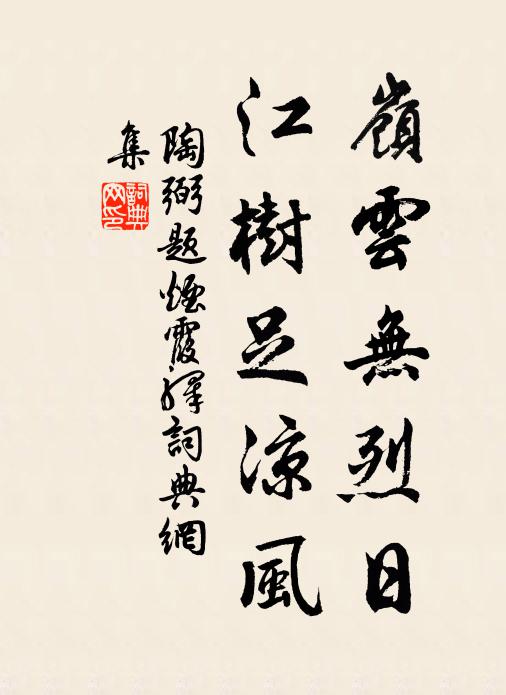 嶺雲無烈日
江樹足涼風
陶弼題煙霞驛詞典網
集
詞典
网印